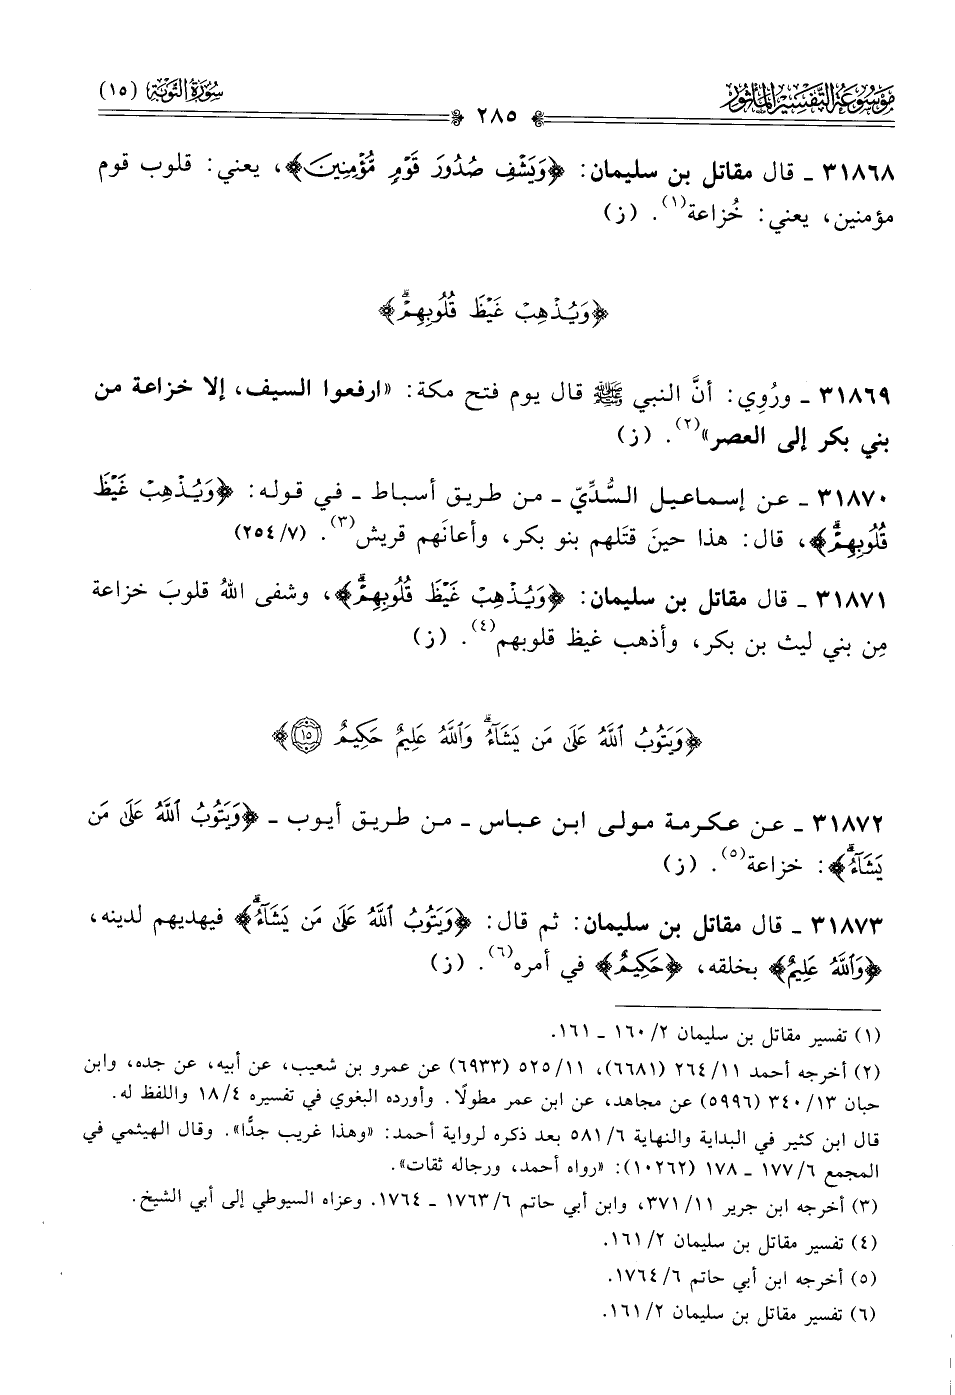 موسوعة التفسير المأثور
سورة التوبة (١٥)
٢٨٥
٣١٨٦٨ ـ قال مقاتل بن سليمان: ﴿وَيَشْفِ صُدُورَ قَوْمٍ مُّؤْمِنِينَ﴾، يعني: قلوب قوم
مؤمنين، يعني: خُزاعة(١). (ز)
﴿وَيُذْهِبْ غَيْظَ قُلُوبِهِمْۗ﴾
٣١٨٦٩ ـ ورُوِي: أنَّ النبي ﷺ قال يوم فتح مكة: «ارفعوا السيف، إلا خزاعة من
بني بكر إلى العصر»(٢). (ز)
٣١٨٧٠ ـ عن إسماعيل السُّدِّيّ ـ من طريق أسباط ـ في قوله: ﴿وَيُذْهِبْ غَيْظَ
قُلُوبِهِمْۗ﴾، قال: هذا حينَ قتَلهم بنو بكر، وأعانَهم قريش(٣). (٢٥٤/٧)
٣١٨٧١ ـ قال مقاتل بن سليمان: ﴿وَيُذْهِبْ غَيْظَ قُلُوبِهِمْۗ﴾، وشفى اللهُ قلوبَ خزاعة
مِن بني ليث بن بكر، وأذهب غيظ قلوبهم(٤). (ز)
﴿وَيَتُوبُ ٱللَّهُ عَلَىٰ مَن يَشَآءُۗ وَٱللَّهُ عَلِيمٌ حَكِيمٌ ١٥﴾
٣١٨٧٢ ـ عن عكرمة مولى ابن عباس ـ من طريق أيوب ـ ﴿وَيَتُوبُ ٱللَّهُ عَلَىٰ مَن
يَشَآءُۗ﴾: خزاعة(٥). (ز)
٣١٨٧٣ ـ قال مقاتل بن سليمان: ثم قال: ﴿وَيَتُوبُ ٱللَّهُ عَلَىٰ مَن يَشَآءُۗ﴾ فيهديهم لدينه،
﴿وَٱللَّهُ عَلِيمٌ﴾ بخلقه، ﴿حَكِيمٌ﴾ في أمره(٦). (ز)
(١) تفسير مقاتل بن سليمان ٢/ ١٦٠ ـ ١٦١.
(٢) أخرجه أحمد ١١/ ٢٦٤ (٦٦٨١)، ١١/ ٥٢٥ (٦٩٣٣) عن عمرو بن شعيب، عن أبيه، عن جده، وابن
حبان ١٣/ ٣٤٠ (٥٩٩٦) عن مجاهد، عن ابن عمر مطولًا. وأورده البغوي في تفسيره ٤/ ١٨ واللفظ له.
قال ابن كثير في البداية والنهاية ٦/ ٥٨١ بعد ذكره لرواية أحمد: «وهذا غريب جدًّا». وقال الهيثمي في
المجمع ٦/ ١٧٧ ـ ١٧٨ (١٠٢٦٢): «رواه أحمد، ورجاله ثقات».
(٣) أخرجه ابن جرير ١١/ ٣٧١، وابن أبي حاتم ٦/ ١٧٦٣ ـ ١٧٦٤. وعزاه السيوطي إلى أبي الشيخ.
(٤) تفسير مقاتل بن سليمان ٢/ ١٦١.
(٥) أخرجه ابن أبي حاتم ٦/ ١٧٦٤.
(٦) تفسير مقاتل بن سليمان ٢/ ١٦١.